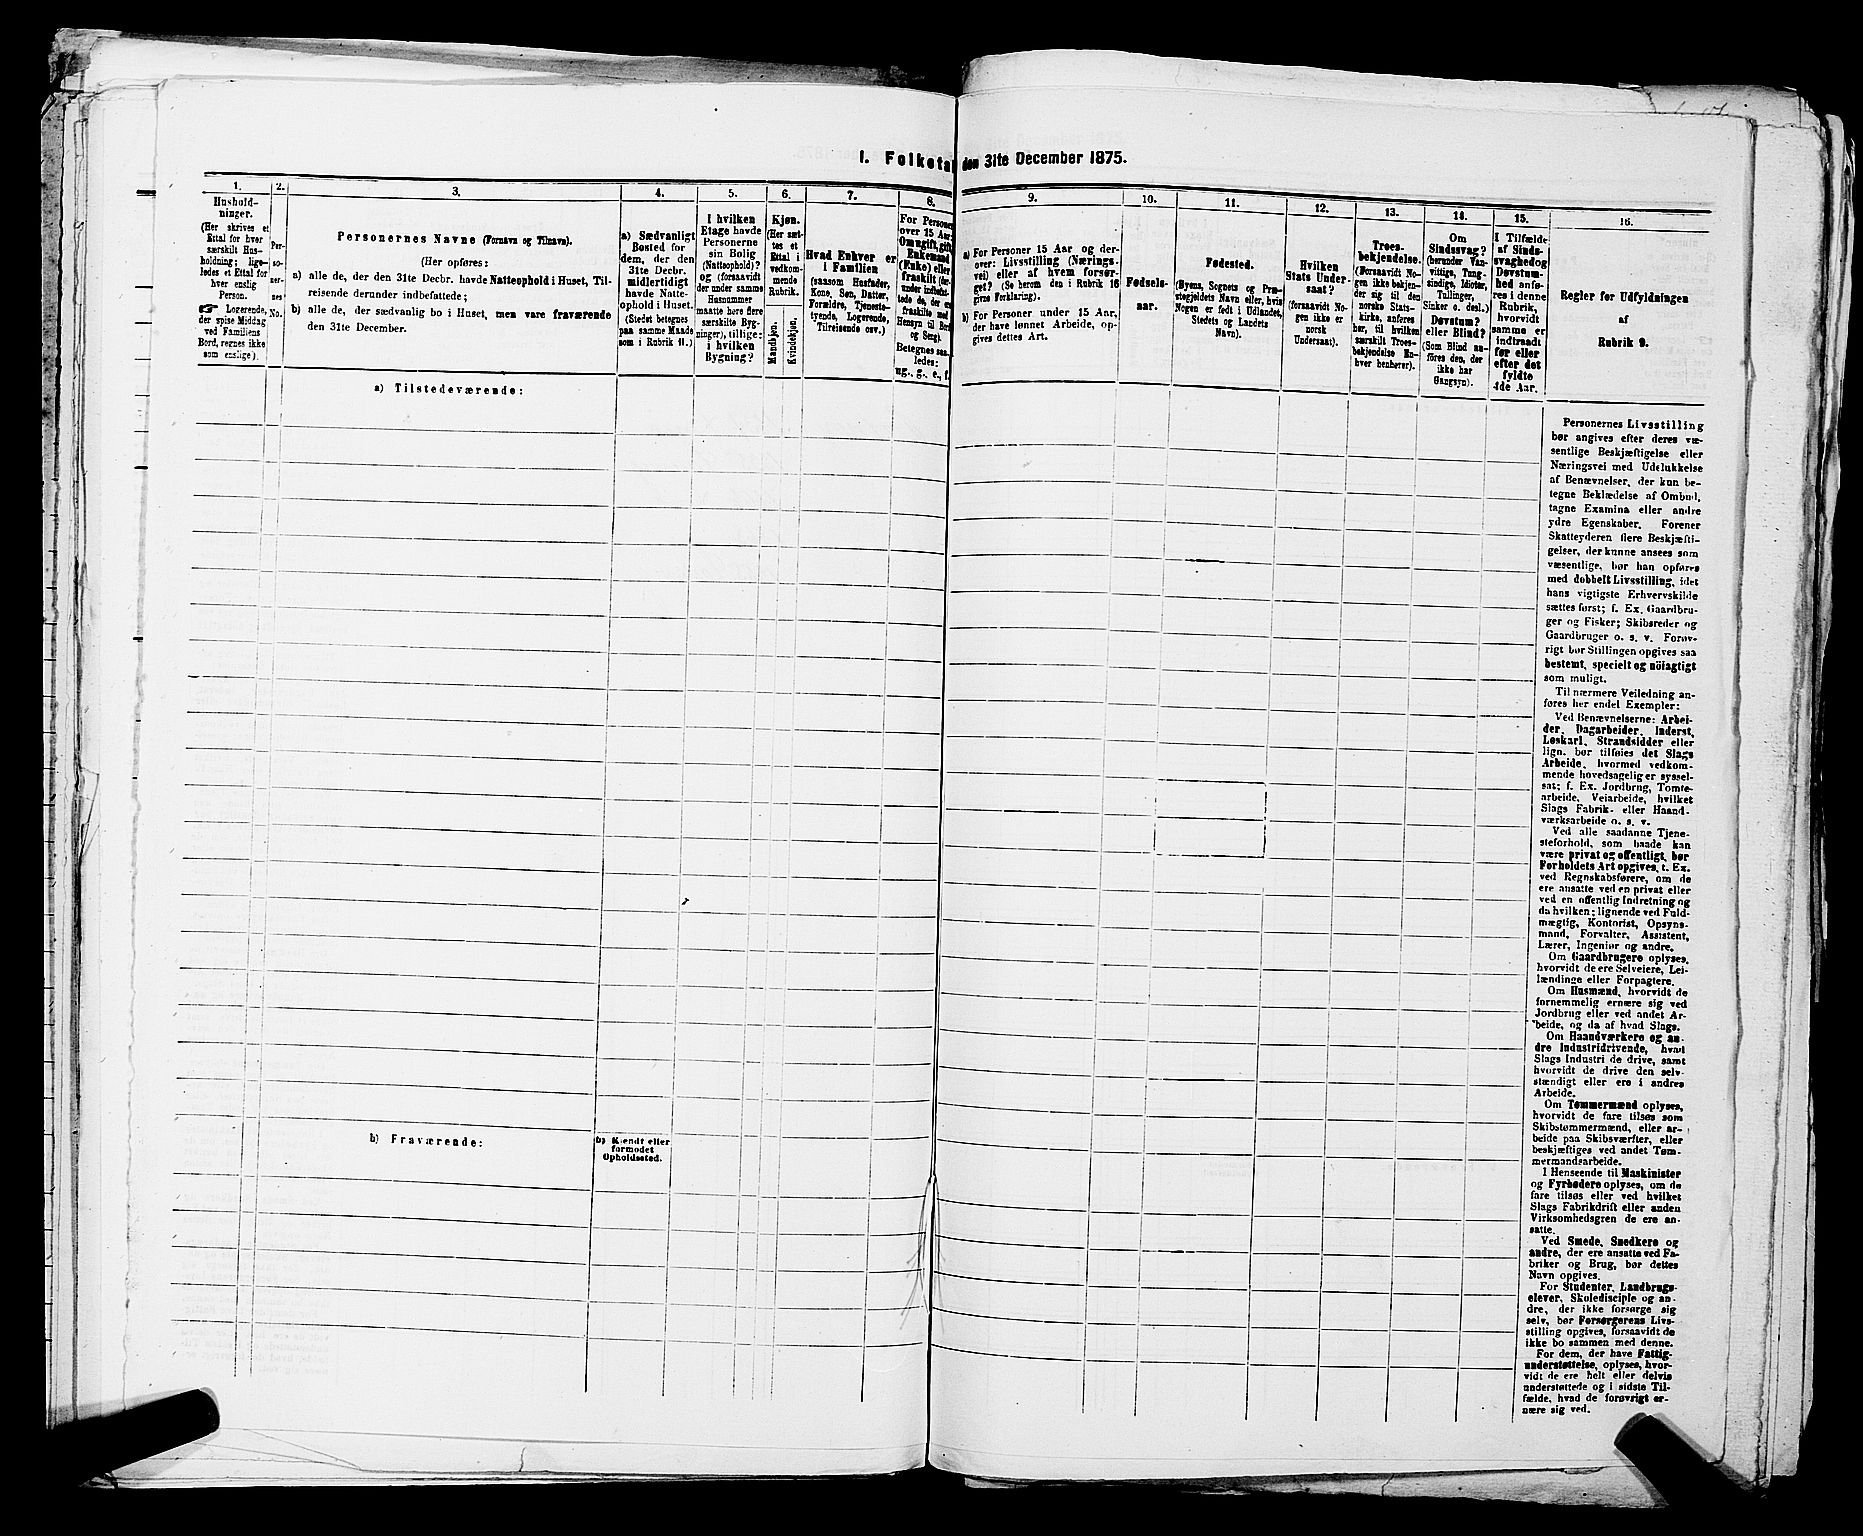 I. Folketæ den 31te December 1875.
1.
Hushold-
ninger.
(Her skrives et
Ettal for hver
særskilt Hus-
holdning; lige-
ledes et Ettal for
hver enslig
Person.
☞ Logerende,
der spise Middag
ved Familiens
Bord, regnes ikke
som enslige).
2.
Per-
so-
ner-
nes
No.
3.
Personernes Navne (Fornavn og Tilnavn).
(Her opføres:
a) alle de, der den 31te Decbr. havde Natteophold i Huset, Til-
reisende derunder indbefattede;
b) alle de, der sædvanlig bo i Huset, men vare fraværende
den 31te December.
4.
a) Sædvanligt
Bosted for
dem, der den
31te Decbr.
midlertidigt
havde Natte-
ophold i Huset.
(Stedet betegnes
paa samme Maade
som i Rubrik 11.)
5.
I hvilken
Etage havde
Personerne
sin Bolig
(Natteophold)?
og (forsaavidt
der under samme
Husnummer
maatte høre flere
særskilte Byg-
ninger), tillige:
i hvilken
Bygning?
6.
Kjøn.
(Her sæt-
tes et
Ettal i
vedkom-
mende
Rubrik.
Mandkjøn.
Kvindekjøn.
7.
Hvad Enhver er
i Familien
(saasom Husfader,
Kone, Søn, Datter,
Forældre, Tjeneste-
tyende, Logerende,
Tilreisende osv.)
8.
For Personer
over 15 Aar:
Om ugift, gift,
Enkemand
(Enke) eller
fraskilt
Hensyn til Bord
og Seng).
Betegnes saa-
ledes:
ug., g., e., f.
9.
a) For Personer 15 Aar og der-
over: Livsstilling (Nærings-
vei) eller af hvem forsør-
get? (Se herom den i Rubrik 16
givne Forklaring).
b) For Personer under 15 Aar,
der have lønnet Arbeide, op-
gives dettes Art.
10.
Fødsels-
aar.
11.
Fødested.
(Byens, Sognets og Præ-
stegjeldets Navn eller, hvis
Nogen er født i Udlandet,
Stedets og Landets
Navn).
12.
Hvilken
Stats Under-
saat?
(forsaavidt No-
gen ikke er
norsk
Undersaat).
13.
Troes-
bekjendelse.
(Forsaavidt No-
gen ikke bekjen-
der sig til den
norske Stats-
kirke, anføres
her, til hvilken
særskilt Troes-
bekjendelse En-
hver henhører).
14.
Om
Sindssvag?
(herunder Van-
vittige, Tung-
sindige, Idioter,
Tullinger,
Sinker o. desl.)
Døvstum?
eller Blind?
(Som Blind an-
føres den, der
ikke har
Gangsyn).
15.
I Tilfælde
af Sinds-
svaghed og
Døvstum-
hed anfø-
res i denne
Rubrik,
hvorvidt
samme er
indtraadt
før eller
efter det
fyldte
4de Aar.
16.
Regler for Udfyldningen
af
Rubrik 9.
a) Tilstedeværende:
b) Fraværende:
b) Kjendt eller
formodet
Opholdssted.
Personernes Livsstilling
bør angives efter deres væ-
sentlige Beskjæftigelse eller
Næringsvei med Udelukkelse
af Benævnelser, der kun be-
tegne Beklædelse af Ombud,
tagne Examina eller andre
ydre Egenskaber. Forener
Skatteyderen flere Beskjæfti-
gelser, der kunne ansees som
væsentlige, bør han opføres
med dobbelt Livsstilling, idet
hans vigtigste Erhvervskilde
sættes først; f. Ex. Gaardbru-
ger og Fisker; Skibsreder og
Gaardbruger o. s. v. Forøv-
rigt bør Stillingen opgives saa
bestemt, specielt og nöiagtigt
som muligt.
Til nærmere Veiledning an-
føres her endel Exempler:
Ved Benævnelserne: Arbei-
der, Dagarbeider, Inderst,
Løskarl, Strandsidder eller
lign. bør tilføies det Slags
Arbeide, hvormed vedkom-
mende hovedsagelig er syssel-
sat; f. Ex. Jordbrug, Tomte-
arbeide, Veiarbeide, hvilket
Slags Fabrik- eller Haand-
værksarbeide o. s. v.
Ved alle saadanne Tjene-
steforhold, som baade kan
være privat og offentligt, bør
Forholdets Art opgives, t. Ex.
ved Regnskabsførere, om de
ere ansatte ved en privat eller
ved en offentlig Indretning og
da hvilken; lignende ved Fuld-
mægtig, Kontorist, Opsyns-
mand, Forvalter, Assistent,
Lærer, Ingeniør og andre.
Om Gaardbrugere oplyses,
hvorvidt de ere Selveiere, Lei-
lændinge eller Forpagtere.
Om Husmænd, hvorvidt de
fornemmelig ernære sig ved
Jordbrug eller ved andet Ar-
beide, og da af hvad Slags.
Om Haandværkere og an-
dre Industridrivende, hvad
Slags Industri de drive, samt
hvorvidt de drive den selv-
stændigt eller ere i andres
Arbeide.
Om Tømmermænd oplyses,
hvorvidt de fare tilsøs som
Skibstømmermænd, eller ar-
beide paa Skibsværfter, eller
beskjæftiges ved andet Tøm-
mermandsarbeide.
I Henseende til Maskinister
og Fyrbødere oplyses, om de
fare tilsøs eller ved hvilket
Slags Fabrikdrift eller anden
Virksomhedsgren de ere an-
satte.
Ved Smede, Snedkere og
andre, der ere ansatte ved Fa-
briker og Brug, bør dettes
Navn opgives.
For Studenter, Landbrugs-
elever, Skoledisciple og an-
dre, der ikke forsørge sig
selv, bør Forsørgerens Livs-
stilling opgives, forsaavidt de
ikke bo sammen med denne.
For dem, der have Fattig-
understøttelse, oplyses, hvor-
vidt de ere helt eller delvis
understøttede og i sidste Til-
fælde, hvad de forøvrigt er-
nære sig ved.